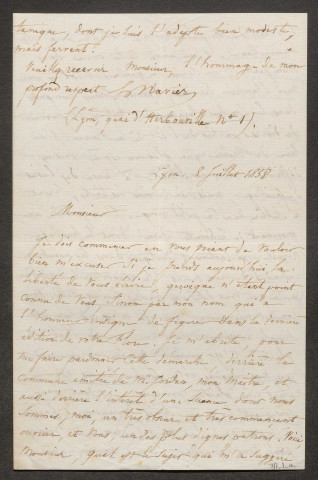 tanique, dont je suis l'adepte bien modeste,
mais fervent.
Veuillez recevoir Monsieur, l'hommage de mon
profond respect
(Lyon, quai d'Herbouville N°
Lyon, 8 Juillet 1858
Monsieur
Je dois commencer en vous priant de vouloir
bien m'excuser si je prends aujourd'hui la
liberté de vous écrire, quoique n'étant point
connu de vous, sinon par mon nom qui a
l'honneur insigne de figurer dans la dernière
édition de votre Flore. Je m'abrite, pour
me faire pardonner cette démarche derrière la
commune amitié de Mr Jordan, mon Maître, et
aussi derrière l'intérêt d'une science dont nous
sommes, moi, un très obscur et très commençant
ouvrier, et vous, un des plus dignes patrons. Voici
Monsieur, quel est le sujet qui m'a suggéré